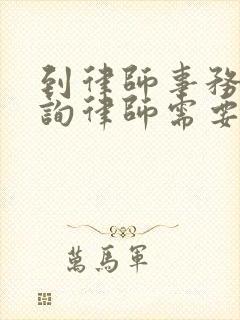 到律師事務
詢律師需要
萬馬軍